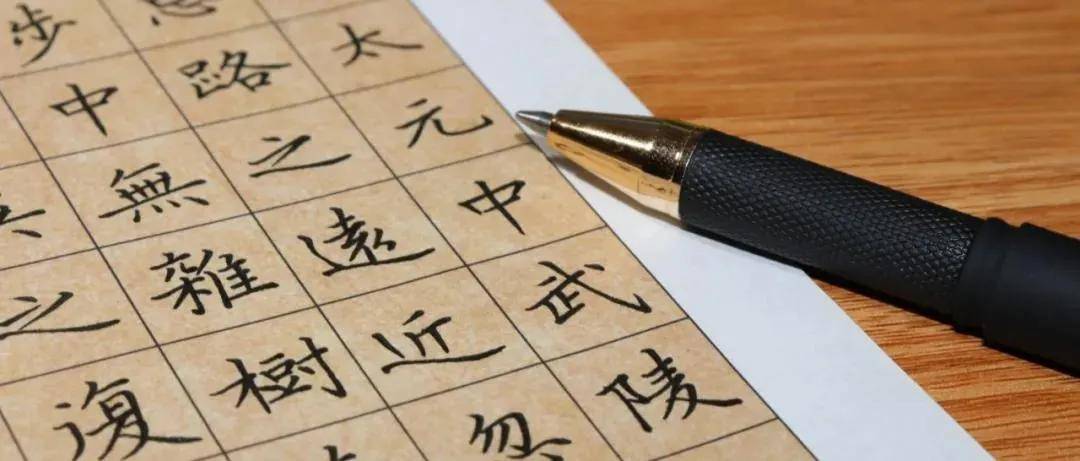 太元中武陵
路之遠近忽
步中無雜樹
之復